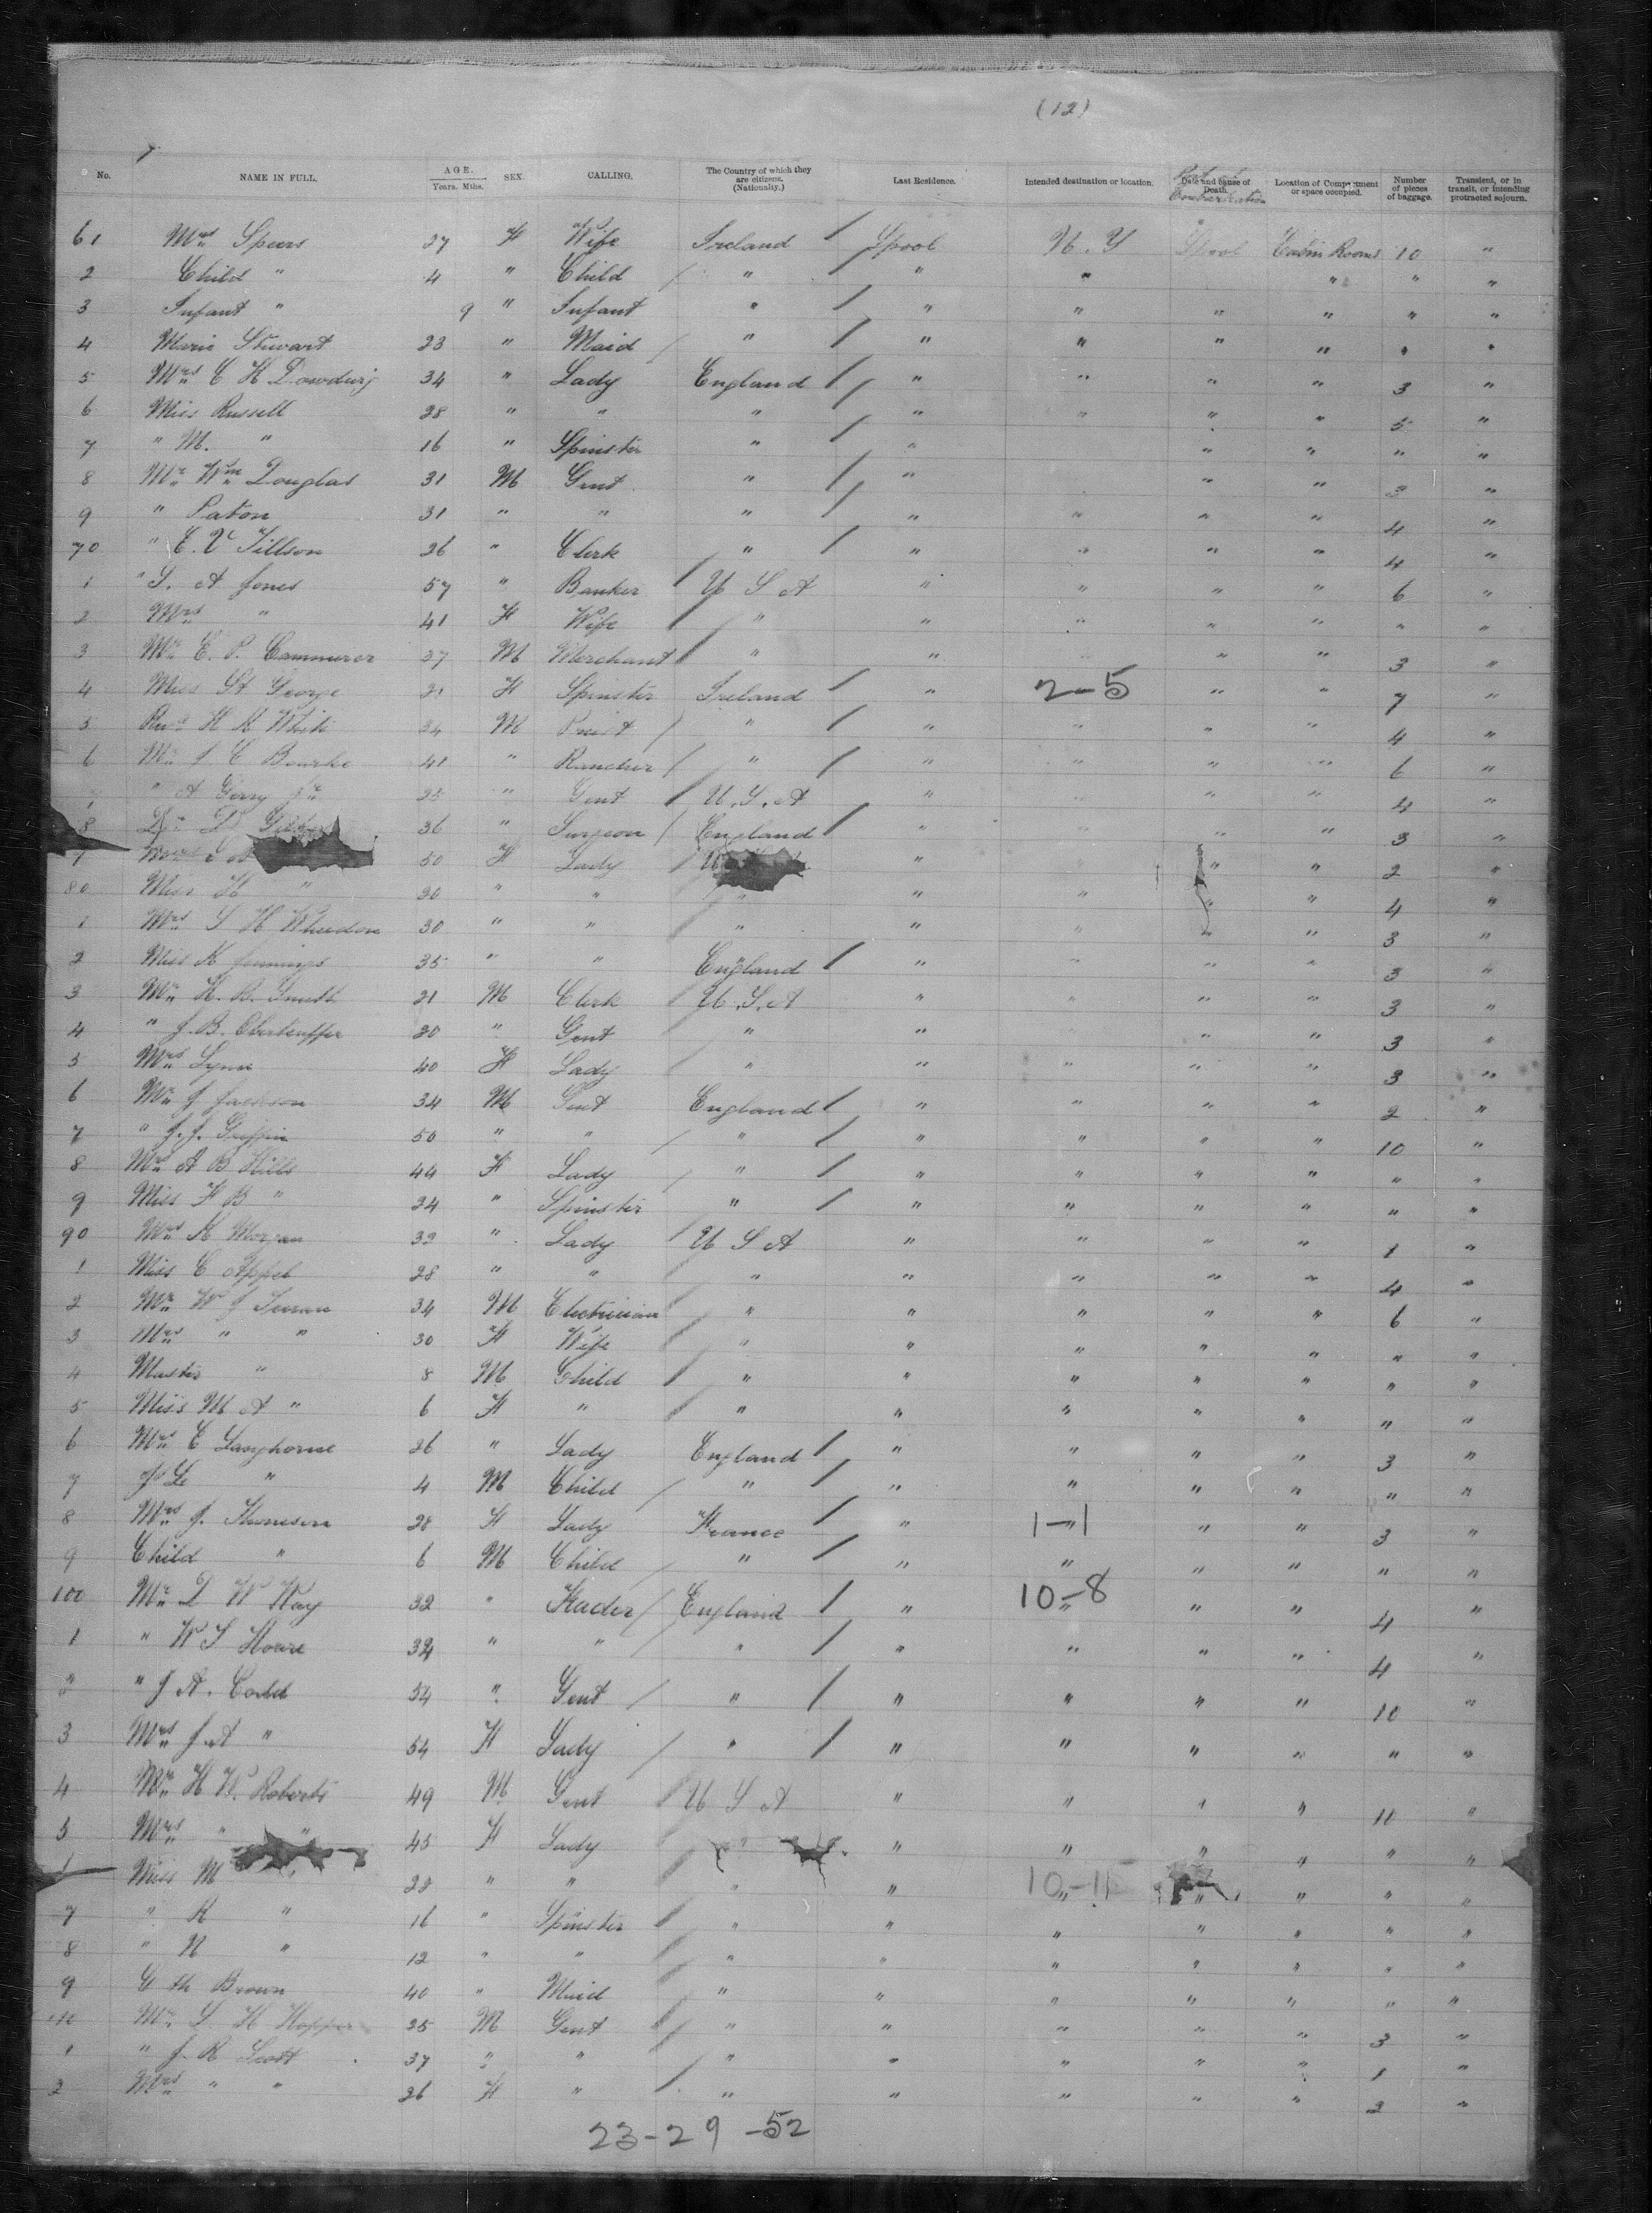 (12)
No. NAME IN FULL. AGE. Years. Mths. SEX. CALLING. The Country of which they are citizens. (Nationality.) Last Residence. Intended destination or location. Date and cause of Death. Location of Compartment or space occupied. Number of pieces of baggage. Transient, or in transit, or intending protracted sojourn.
61 Mrs Speers 27 F Wife Ireland L'pool N. Y L'pool Cabin Rooms 10 "
2 Child " 4 " Child " " " " " "
3 Infant " 9 " Infant " " " " " " "
4 Marie Stewart 23 " Maid " " " " " " "
5 Mrs C H Dowdwig 34 " Lady England " " " " 3 "
6 Miss Russell 28 " " " " " " " 5 "
7 " M. " 16 " Spinster " " " " " "
8 Mr Wm Douglas 31 M Gent " " " " 3 "
9 " Paton 31 " " " " " " " 4 "
70 " E. V Tillson 26 " Clerk " " " " " 4 "
1 " S. A Jones 57 " Banker U S A " " " " 6 "
2 Mrs " 41 F Wife " " " " " " "
3 Mr E. P. Cammerer 37 M Merchant " " " " " 3 "
4 Miss St George 21 F Spinster Ireland " 2-5 " " 7 "
5 Revd H A White 34 M Priest " " " " " 4 "
6 Mr J C Bourke 41 " Rancher " " " " " 6 "
" A Gerry Jr 25 " Gent U.S.A " " " " 4 "
8 Dr 36 " Surgeon England " " " " 3 "
Mrs 50 F Lady U " " " " 2 "
80 Miss H " 20 " " " " " " " 4 "
1 Mrs S H Wheedon 30 " " " " " " " 3 "
2 Miss K Jennings 35 " " England " " " " 3 "
3 Mr H. B. Smith 21 M Clerk U.S.A " " " " 3 "
4 " J. B. Oberteuffer 20 " Gent " " " " 3 "
5 Mrs Lynn 40 F Lady " " " " " 3 "
6 Mr J Jackson 34 M Gent England " " " " 2 "
7 " J. J. Griffin 50 " " " " " " " 10 "
8 Mrs A B Hills 44 F Lady " " " " " " "
9 Miss F B " 24 " Spinster " " " " " " "
90 Mrs K Morgan 33 " Lady U S A " " " " 1 "
1 Miss C Appel 28 " " " " " " " 4 "
2 Mr W J 34 M Electrician " " " " " 6 "
3 Mrs " " 30 F Wife " " " " " " "
4 Master " 8 M Child " " " " " " "
5 Miss M A " 6 F " " " " " " " "
6 Mrs C Langhorne 26 " Lady England " " " " 3 "
7 " 4 M Child " " " " " " "
8 Mrs J. Thomson 28 F Lady France " 1-1 " " 3 "
9 Child " 6 M Child " " " " " " "
100 Mr D W Way 32 " Trader England " 10-8 " " 4 "
1 " W S Hoare 32 " " " " " " " 4 "
2 " J A. Codd 54 " Gent " " " " " 10 "
3 Mrs J A " 54 F Lady " " " " " " "
4 Mr H W. Roberts 49 M Gent U S A " " " " 10 "
5 Mrs " " 45 F Lady " " " " " " "
Miss M " 22 " " " " 10-11 " " " "
7 " K " 16 " Spinster " " " " " " "
8 " N " 12 " " " " " " " " "
9 Brown 40 " Maid " " " " " " "
110 Mr S. H Hopper 25 M Gent " " " " " 3 "
1 " J. R Scott 37 " " " " " " " 1 "
2 Mrs " " 26 F " " " " " " 2 "
23-29-52